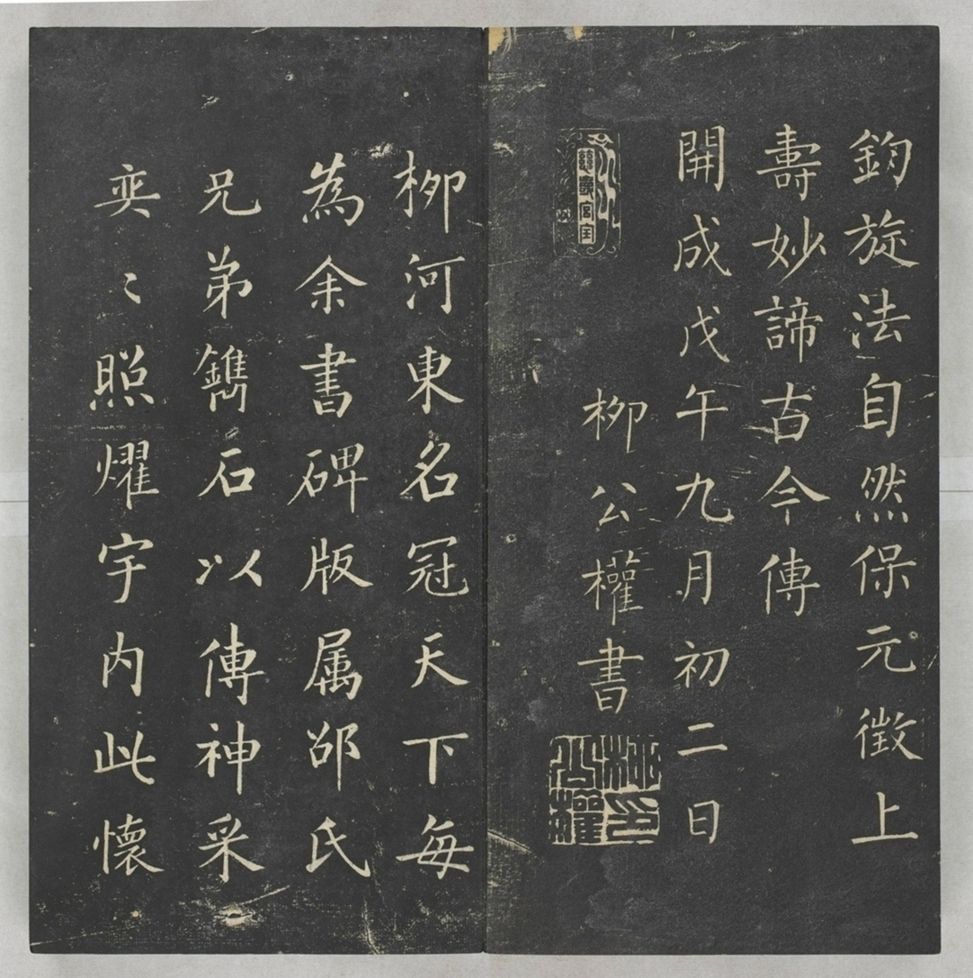 鈞旋法自然保元徵上
壽妙諦古今傳
開成戊午九月初二日
柳公權書
柳河東名冠天下每
為余書碑版属邵氏
兄弟鐫石以傳神采
奕〻照燿宇内此懷